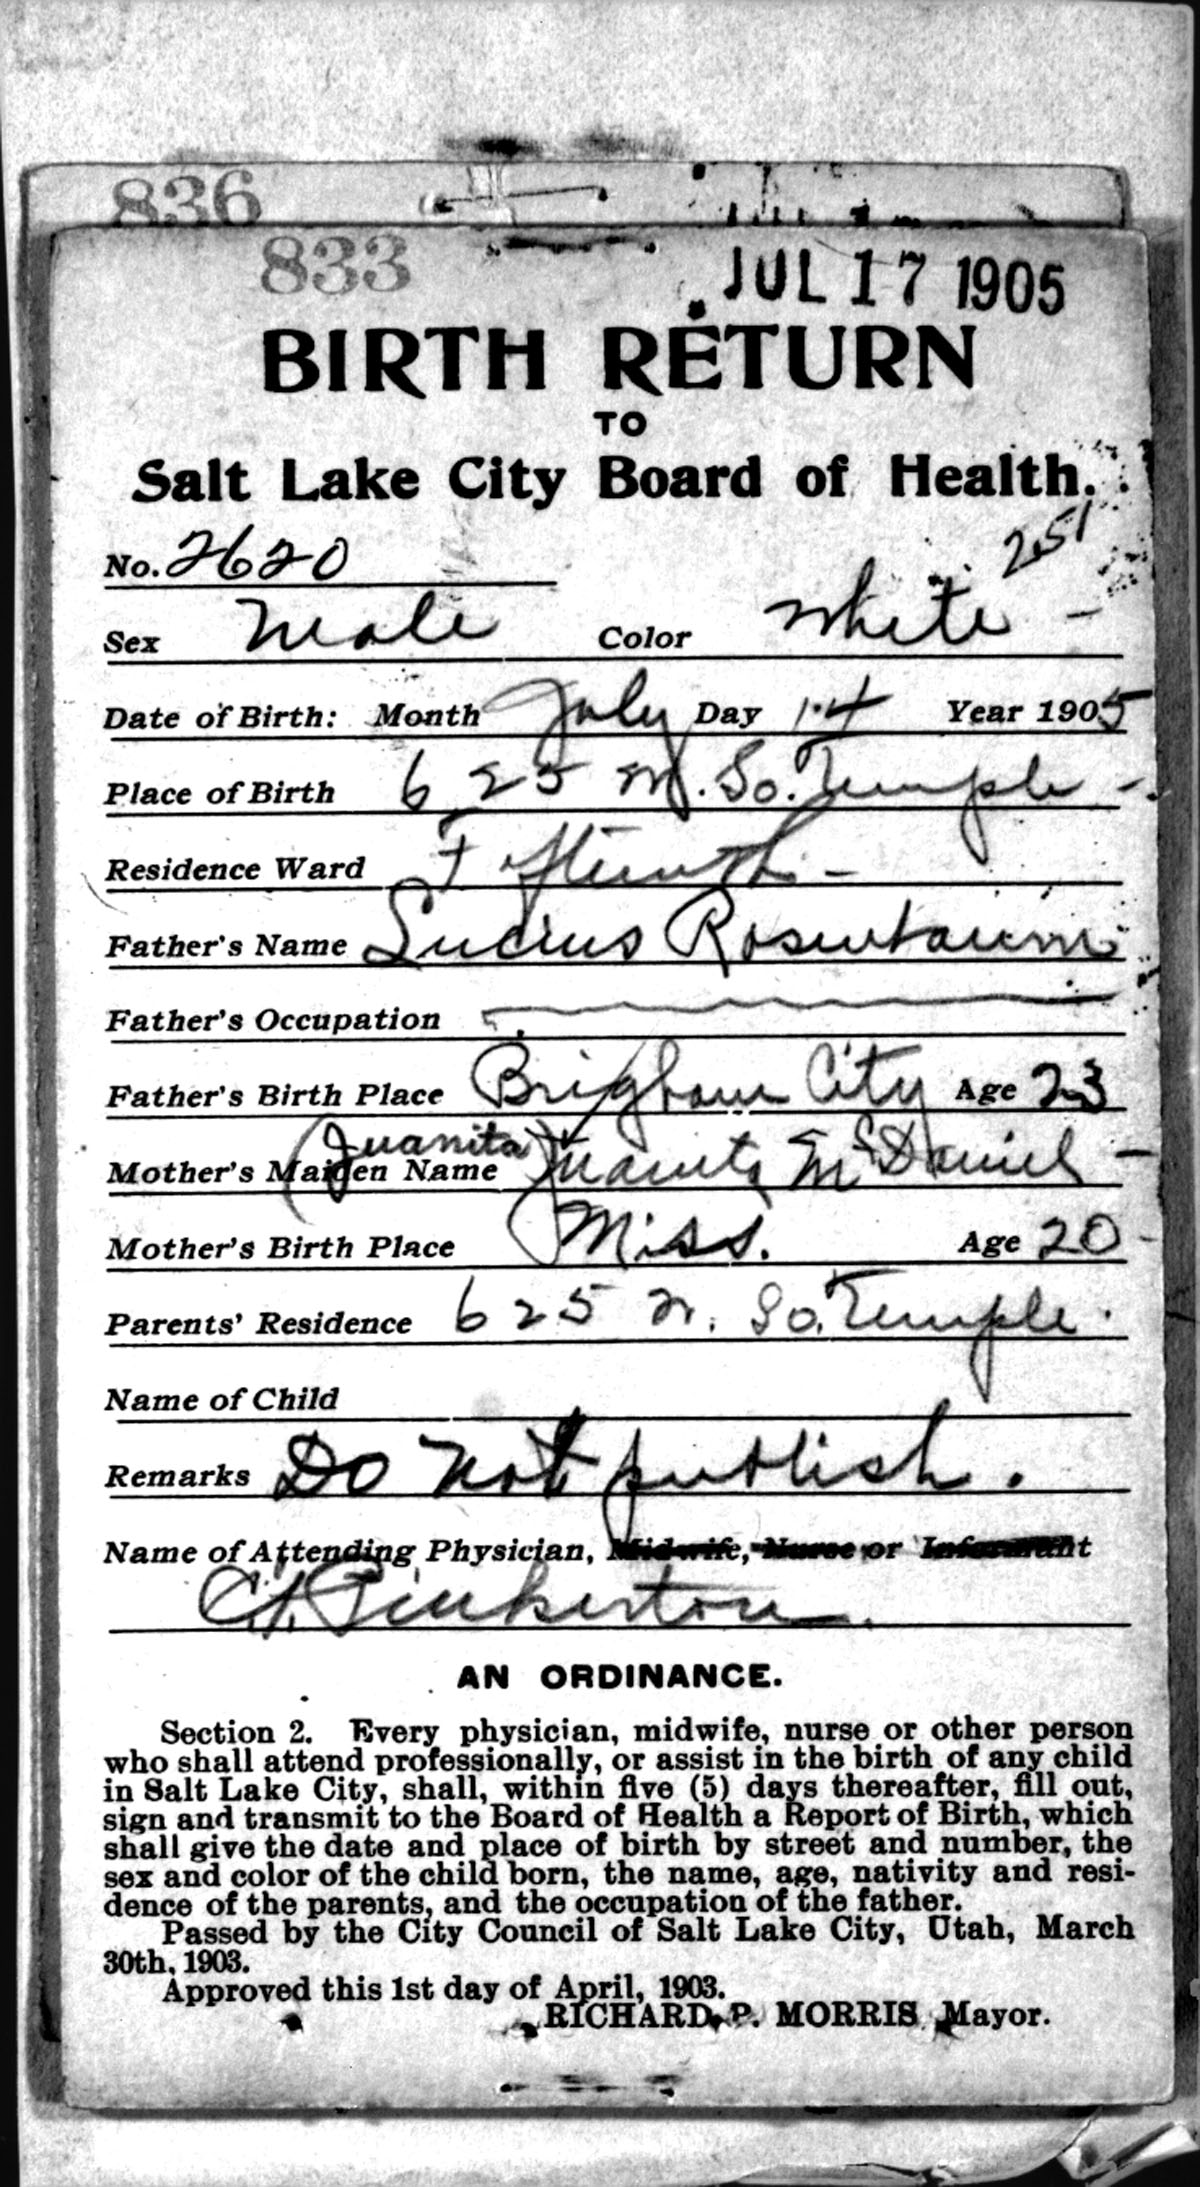 836
833 JUL 17 1905
BIRTH RETURN
TO
Salt Lake City Board of Health.
251
No. 2620
Sex Male Color White -
Date of Birth: Month July Day 14 Year 1905
Place of Birth 625 W. So. Temple -
Residence Ward Fifteenth -
Father's Name Lucius Rosenbaum
Father's Occupation
Father's Birth Place Brigham City Age 23
(Juanita)
Mother's Maiden Name Juanita McDaniel -
Mother's Birth Place Miss. Age 20 -
Parents' Residence 625 W. So. Temple.
Name of Child
Remarks Do not publish.
Name of Attending Physician, Midwife, Nurse or Informant
Pinkerton
AN ORDINANCE.
Section 2. Every physician, midwife, nurse or other person
who shall attend professionally, or assist in the birth of any child
in Salt Lake City, shall, within five (5) days thereafter, fill out,
sign and transmit to the Board of Health a Report of Birth, which
shall give the date and place of birth by street and number, the
sex and color of the child born, the name, age, nativity and resi-
dence of the parents, and the occupation of the father.
Passed by the City Council of Salt Lake City, Utah, March
30th, 1903.
Approved this 1st day of April, 1903.
RICHARD P. MORRIS, Mayor.